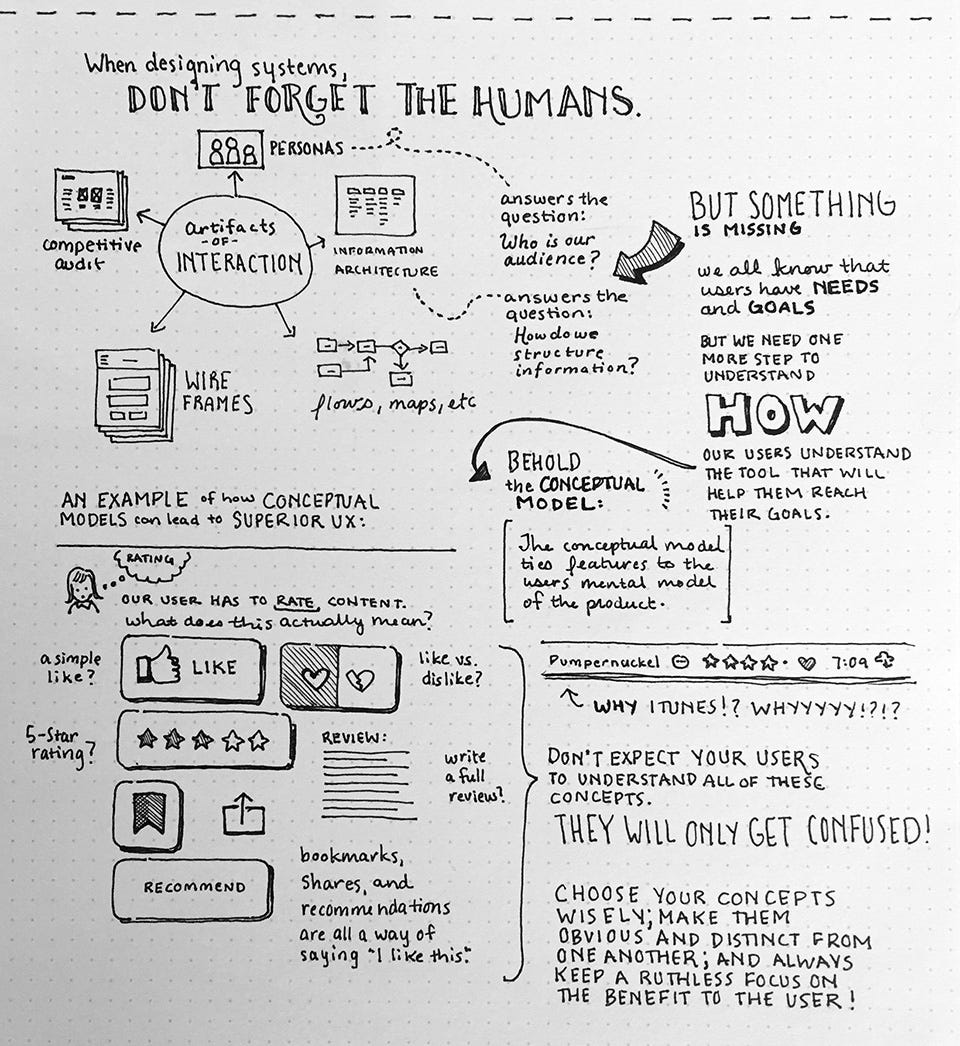 When designing systems,
DON'T FORGET THE HUMANS.
PERSONAS
artifacts
-OF-
INTERACTION
competitive
audit
INFORMATION
ARCHITECTURE
WIRE
FRAMES
flows, maps, etc
answers the
question:
Who is our
audience?
answers the
question:
How do we
structure
information?
BUT SOMETHING
IS MISSING
we all know that
users have NEEDS
and GOALS
BUT WE NEED ONE
MORE STEP TO
UNDERSTAND
HOW
OUR USERS UNDERSTAND
THE TOOL THAT WILL
HELP THEM REACH
THEIR GOALS.
BEHOLD
the CONCEPTUAL
MODEL:
The conceptual model
ties features to the
users mental model
of the product.
AN EXAMPLE of how CONCEPTUAL
MODELS can lead to SUPERIOR UX:
RATING
OUR USER HAS TO RATE CONTENT.
What does this actually mean?
a simple
like?
LIKE
like vs.
dislike?
5-Star
rating?
REVIEW:
write
a full
review?
RECOMMEND
bookmarks,
Shares, and
recommendations
are all a way of
saying "I like this."
Pumpernuckel 7:09
WHY ITUNES!? WHYYYYY!?!?
DON'T EXPECT YOUR USERS
TO UNDERSTAND ALL OF THESE
CONCEPTS.
THEY WILL ONLY GET CONFUSED!
CHOOSE YOUR CONCEPTS
WISELY; MAKE THEM
OBVIOUS AND DISTINCT FROM
ONE ANOTHER; AND ALWAYS
KEEP A RUTHLESS FOCUS ON
THE BENEFIT TO THE USER!